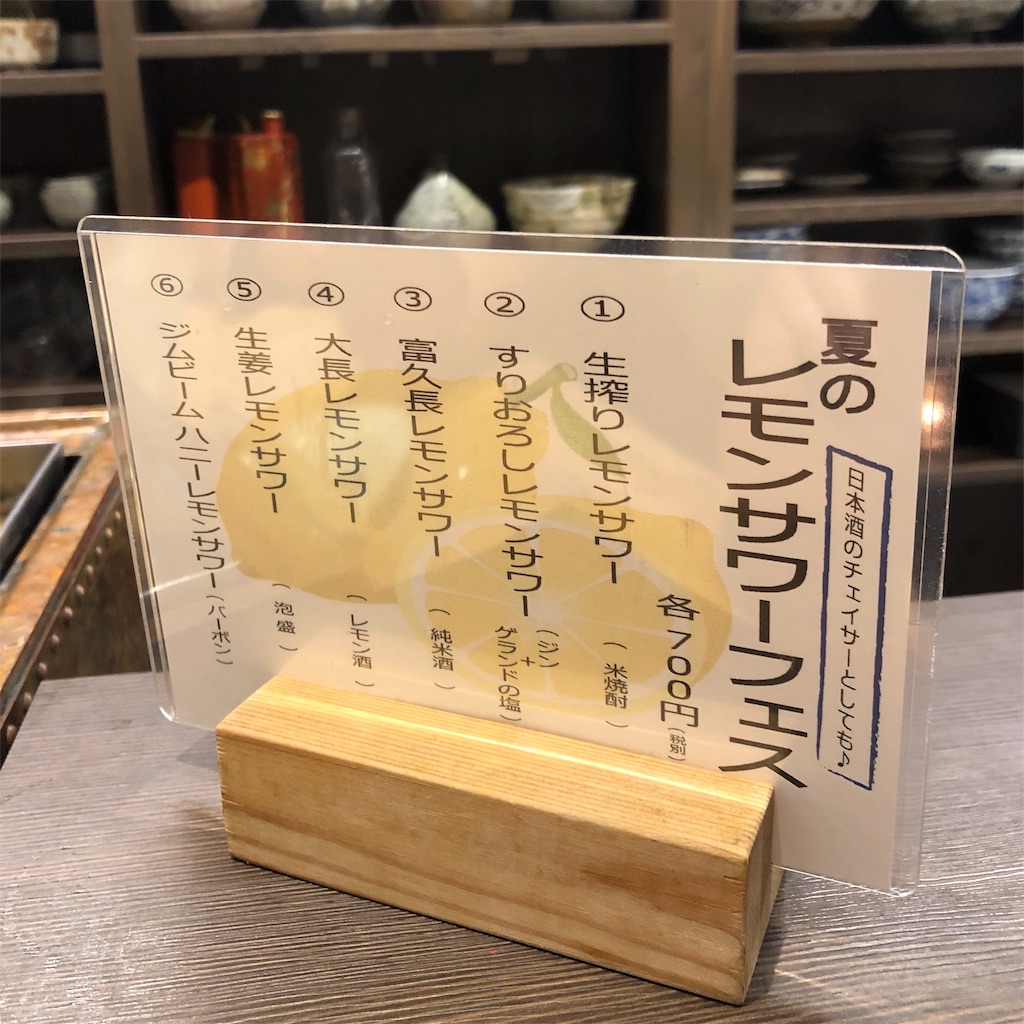 夏の
レモンサワーフェス
日本酒のチェイサーとしても♪
各700円(税別)
① 生搾りレモンサワー (米焼酎)
② すりおろしレモンサワー (ジン)+ゲランドの塩)
③ 富久長レモンサワー (純米酒)
④ 大長レモンサワー (レモン酒)
⑤ 生姜レモンサワー (泡盛)
⑥ ジムビームハニーレモンサワー (バーボン)